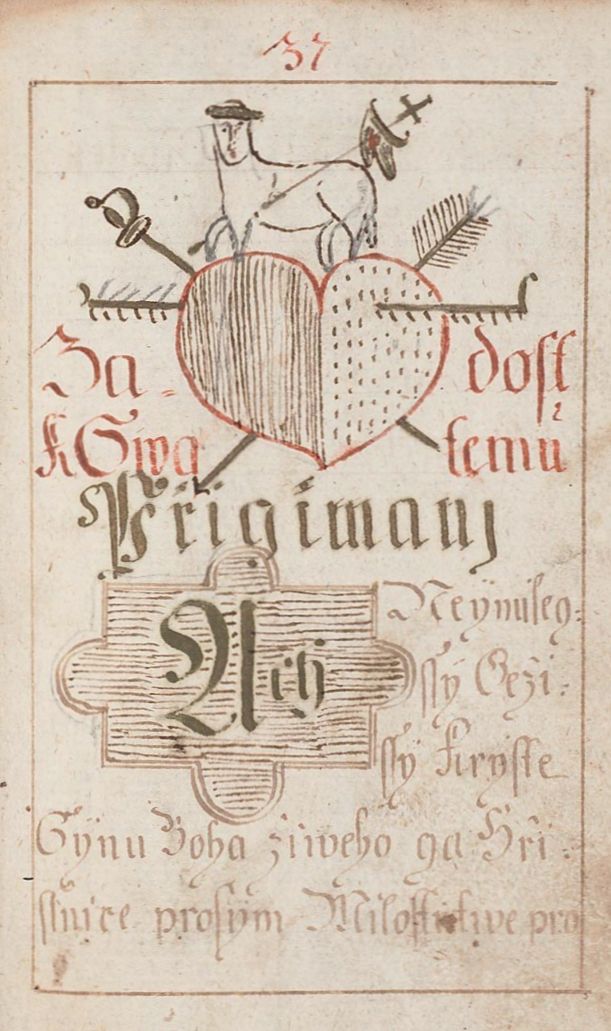 37
Za= dosť
k Swa temu
Přigimanj
Ach Neymileg:
ssý Gezi:
ssý Kryste
Synu Boha žiweho ga Hři:
ssnice prosým Milostiwe pro